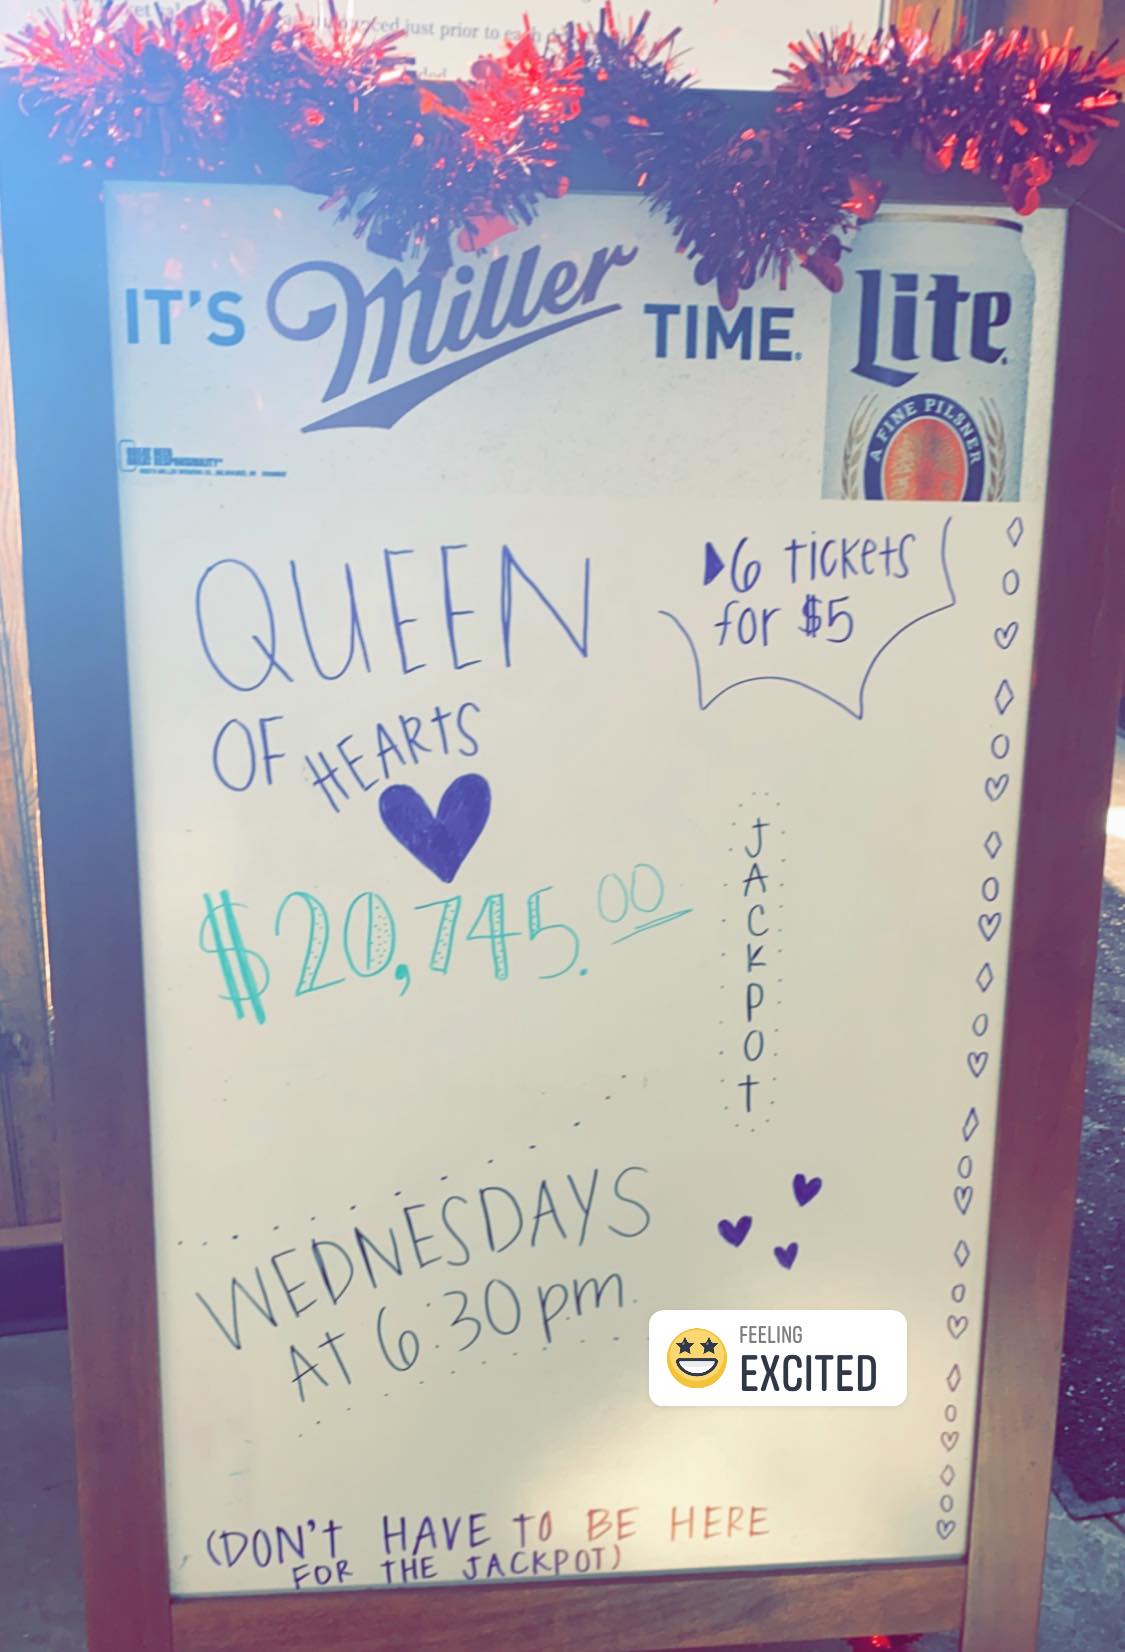 ced just prior to each d
IT'S Miller TIME.
Lite
A FINE PILSNER
QUEEN
OF HEARTS
6 tickets
for $5
$20,745.00
JACKPOT
WEDNESDAYS
AT 6:30pm.
FEELING
EXCITED
(DON't HAVE tO BE HERE
FOR tHE JACKPOT)